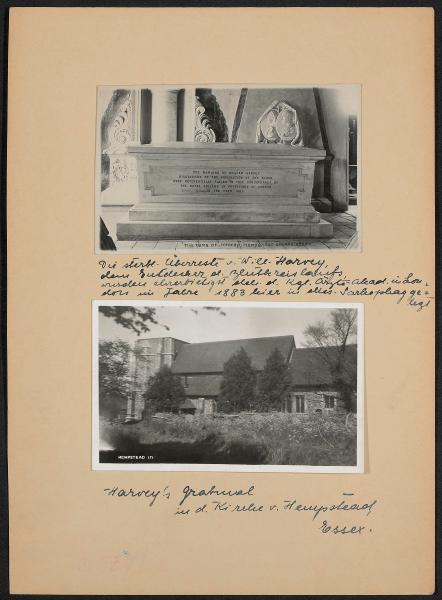 THE REMAINS OF WILLIAM HARVEY
DISCOVERER OF THE CIRCULATION OF THE BLOOD
WERE REVERENTIALLY PLACED IN THIS SARCOPHAGUS BY
THE ROYAL COLLEGE OF PHYSICIANS OF LONDON
IN THE YEAR 1883
THE TOMB OF HARVEY, HEMPSTEAD
Die sterbl. Überreste v. Will. Harvey,
dem Entdecker d. Blutkreislaufs,
wurden ehrerbietigst v. d. Kgl. Ärzte-Akad. in Lon=
don im Jahre 1883 hier in dies. Sarkophag ge=
legt
HEMPSTEAD (7)
Harvey's Grabmal
in d. Kirche v. Hempstead,
Essex.